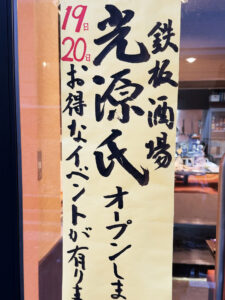 鉄板酒場
光源氏オープンしま
19日
20日お得なイベントが有りま